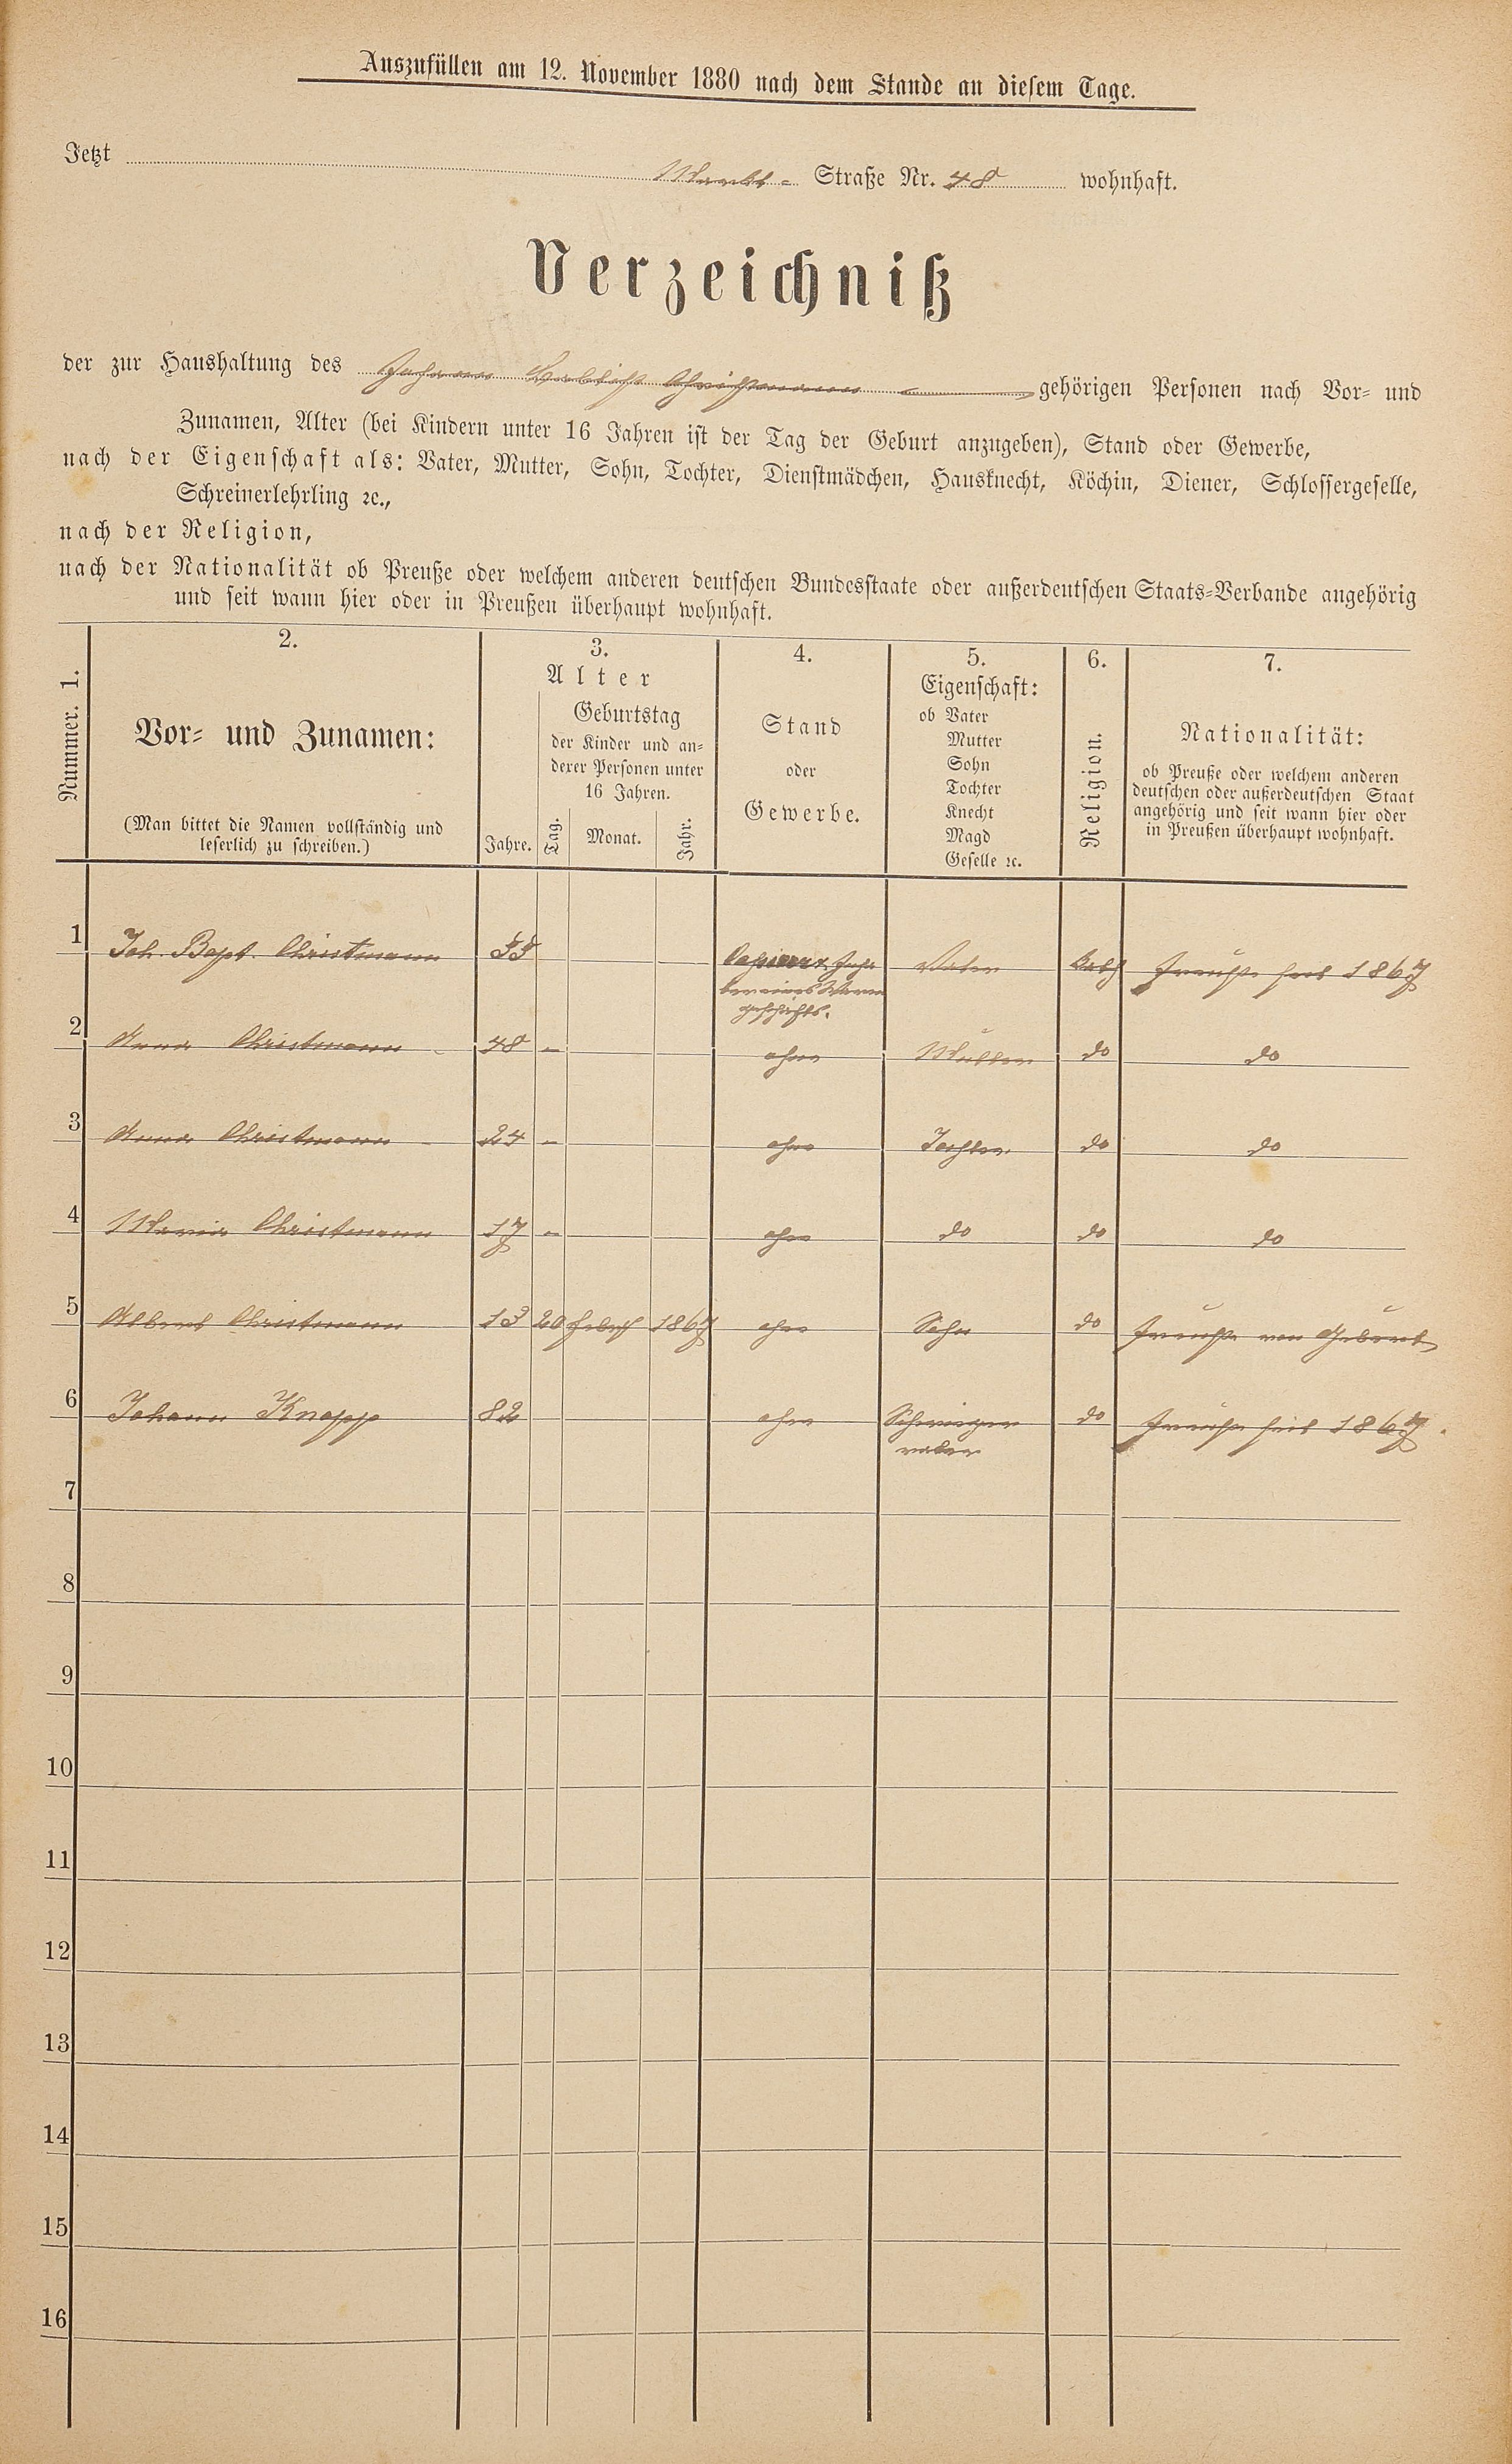 Auszufüllen am 12. November 1880 nach dem Stande an diesem Tage.
Jetzt Markt- Straße Nr. 48 wohnhaft.
Verzeichniß
der zur Haushaltung des Johann Christmann gehörigen Personen nach Vor- und
Zunamen, Alter (bei Kindern unter 16 Jahren ist der Tag der Geburt anzugeben), Stand oder Gewerbe,
nach der Eigenschaft als: Vater, Mutter, Sohn, Tochter, Dienstmädchen, Hausknecht, Köchin, Diener, Schlossergeselle,
Schreinerlehrling ꝛc.,
nach der Religion,
nach der Nationalität ob Preuße oder welchem anderen deutschen Bundesstaate oder außerdeutschen Staats-Verbande angehörig
und seit wann hier oder in Preußen überhaupt wohnhaft.
Nummer. 1.
2.
Vor- und Zunamen:
(Man bittet die Namen vollständig und
leserlich zu schreiben.)
3.
Alter
Jahre.
Geburtstag
der Kinder und an-
derer Personen unter
16 Jahren.
Tag. Monat. Jahr.
4.
Stand
oder
Gewerbe.
5.
Eigenschaft:
ob Vater
Mutter
Sohn
Tochter
Knecht
Magd
Geselle ꝛc.
6.
Religion.
7.
Nationalität:
ob Preuße oder welchem anderen
deutschen oder außerdeutschen Staat
angehörig und seit wann hier oder
in Preußen überhaupt wohnhaft.
1 Joh. Bapt. Christmann 55 Inha
ber eines Waren
geschäfts. Vater kath Preuße seit 1867
2 Anna Christmann 48 - ohne Mutter do do
3 Anna Christmann 24 - ohne Tochter do do
4 Maria Christmann 17 - ohne do do do
5 Albert Christmann 13 20 Febr 1867 ohne Sohn do Preuße von Geburt
6 Johann Knapp 82 ohne Schwieger
vater do Preuße seit 1867.
7
8
9
10
11
12
13
14
15
16